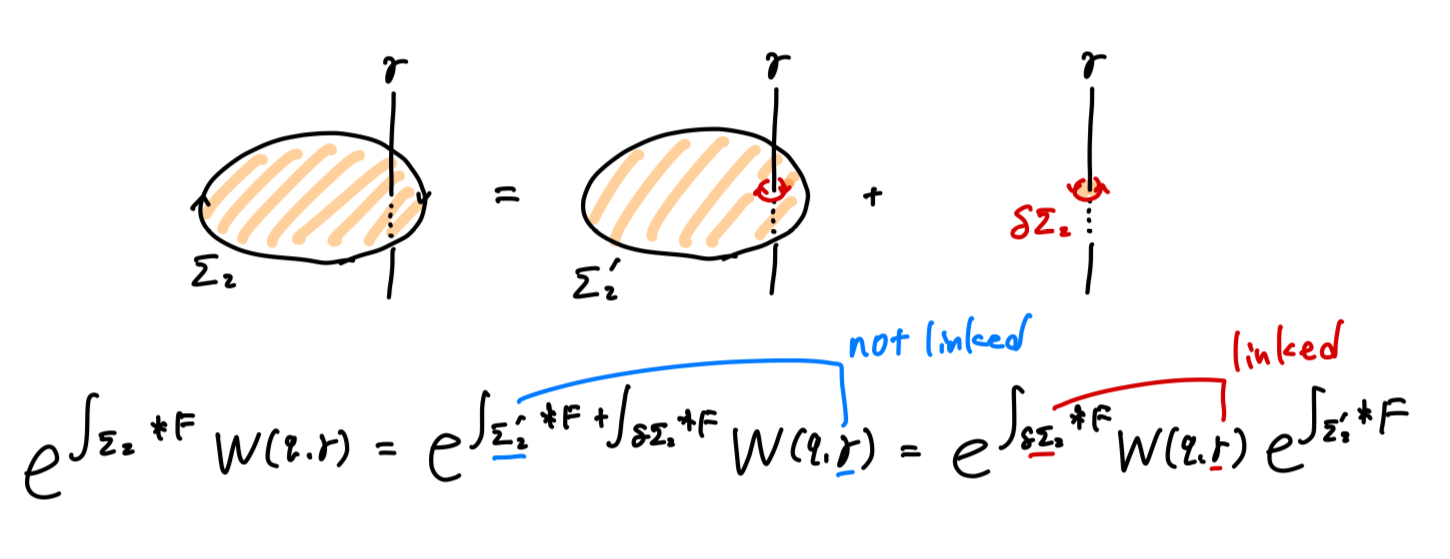 γ γ γ
= +
δΣ₂
Σ₂ Σ₂′
not linked linked
e^{∫_{Σ₂} *F} W(q.γ) = e^{∫_{Σ₂′} *F + ∫_{δΣ₂} *F} W(q.γ) = e^{∫_{δΣ₂} *F} W(q.γ) e^{∫_{Σ₂′} *F}